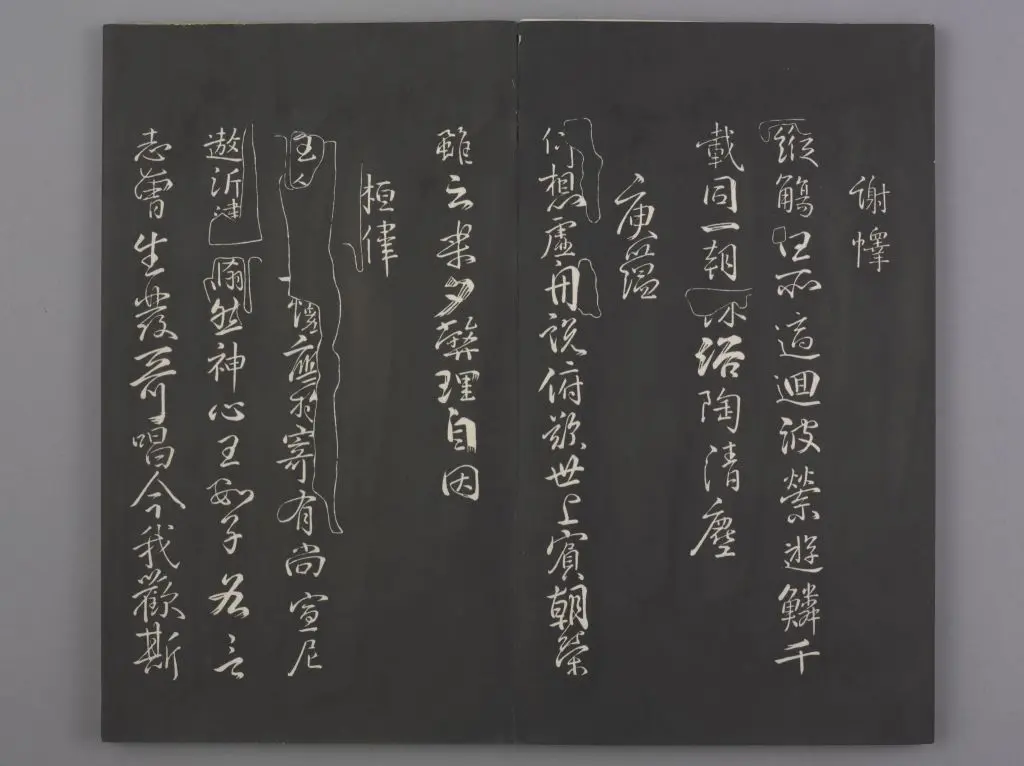 謝懌
縱觴任所適迴波縈遊鱗千
載同一朝沐浴陶清塵
庾蘊
仰想虛舟說俯歎世上賓朝榮
雖云樂夕弊理自因
桓偉
主人懷應物寄有尚宣尼
遨沂津翛然神心王數子各言
志曾生發奇唱今我歡斯